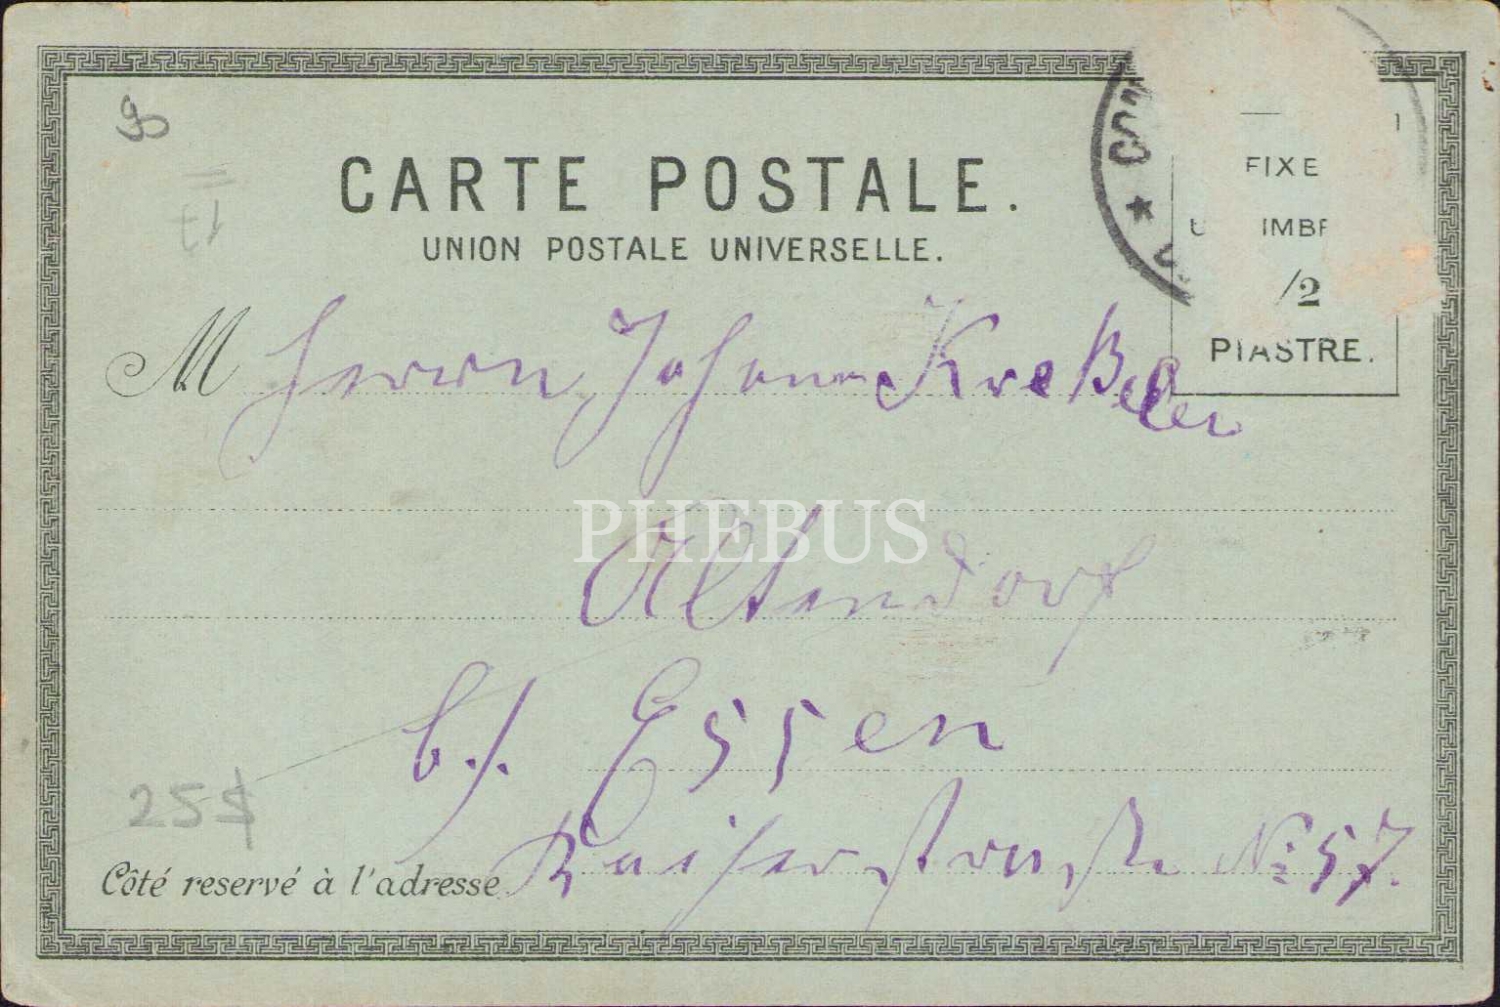 CARTE POSTALE.
UNION POSTALE UNIVERSELLE.
FIXE
U IMBR
/2
PIASTRE.
M Herrn Johann
PHEBUS
Altendorf
b./. Essen
25$
Kaiserstraße No 57.
Côté reservé à l'adresse